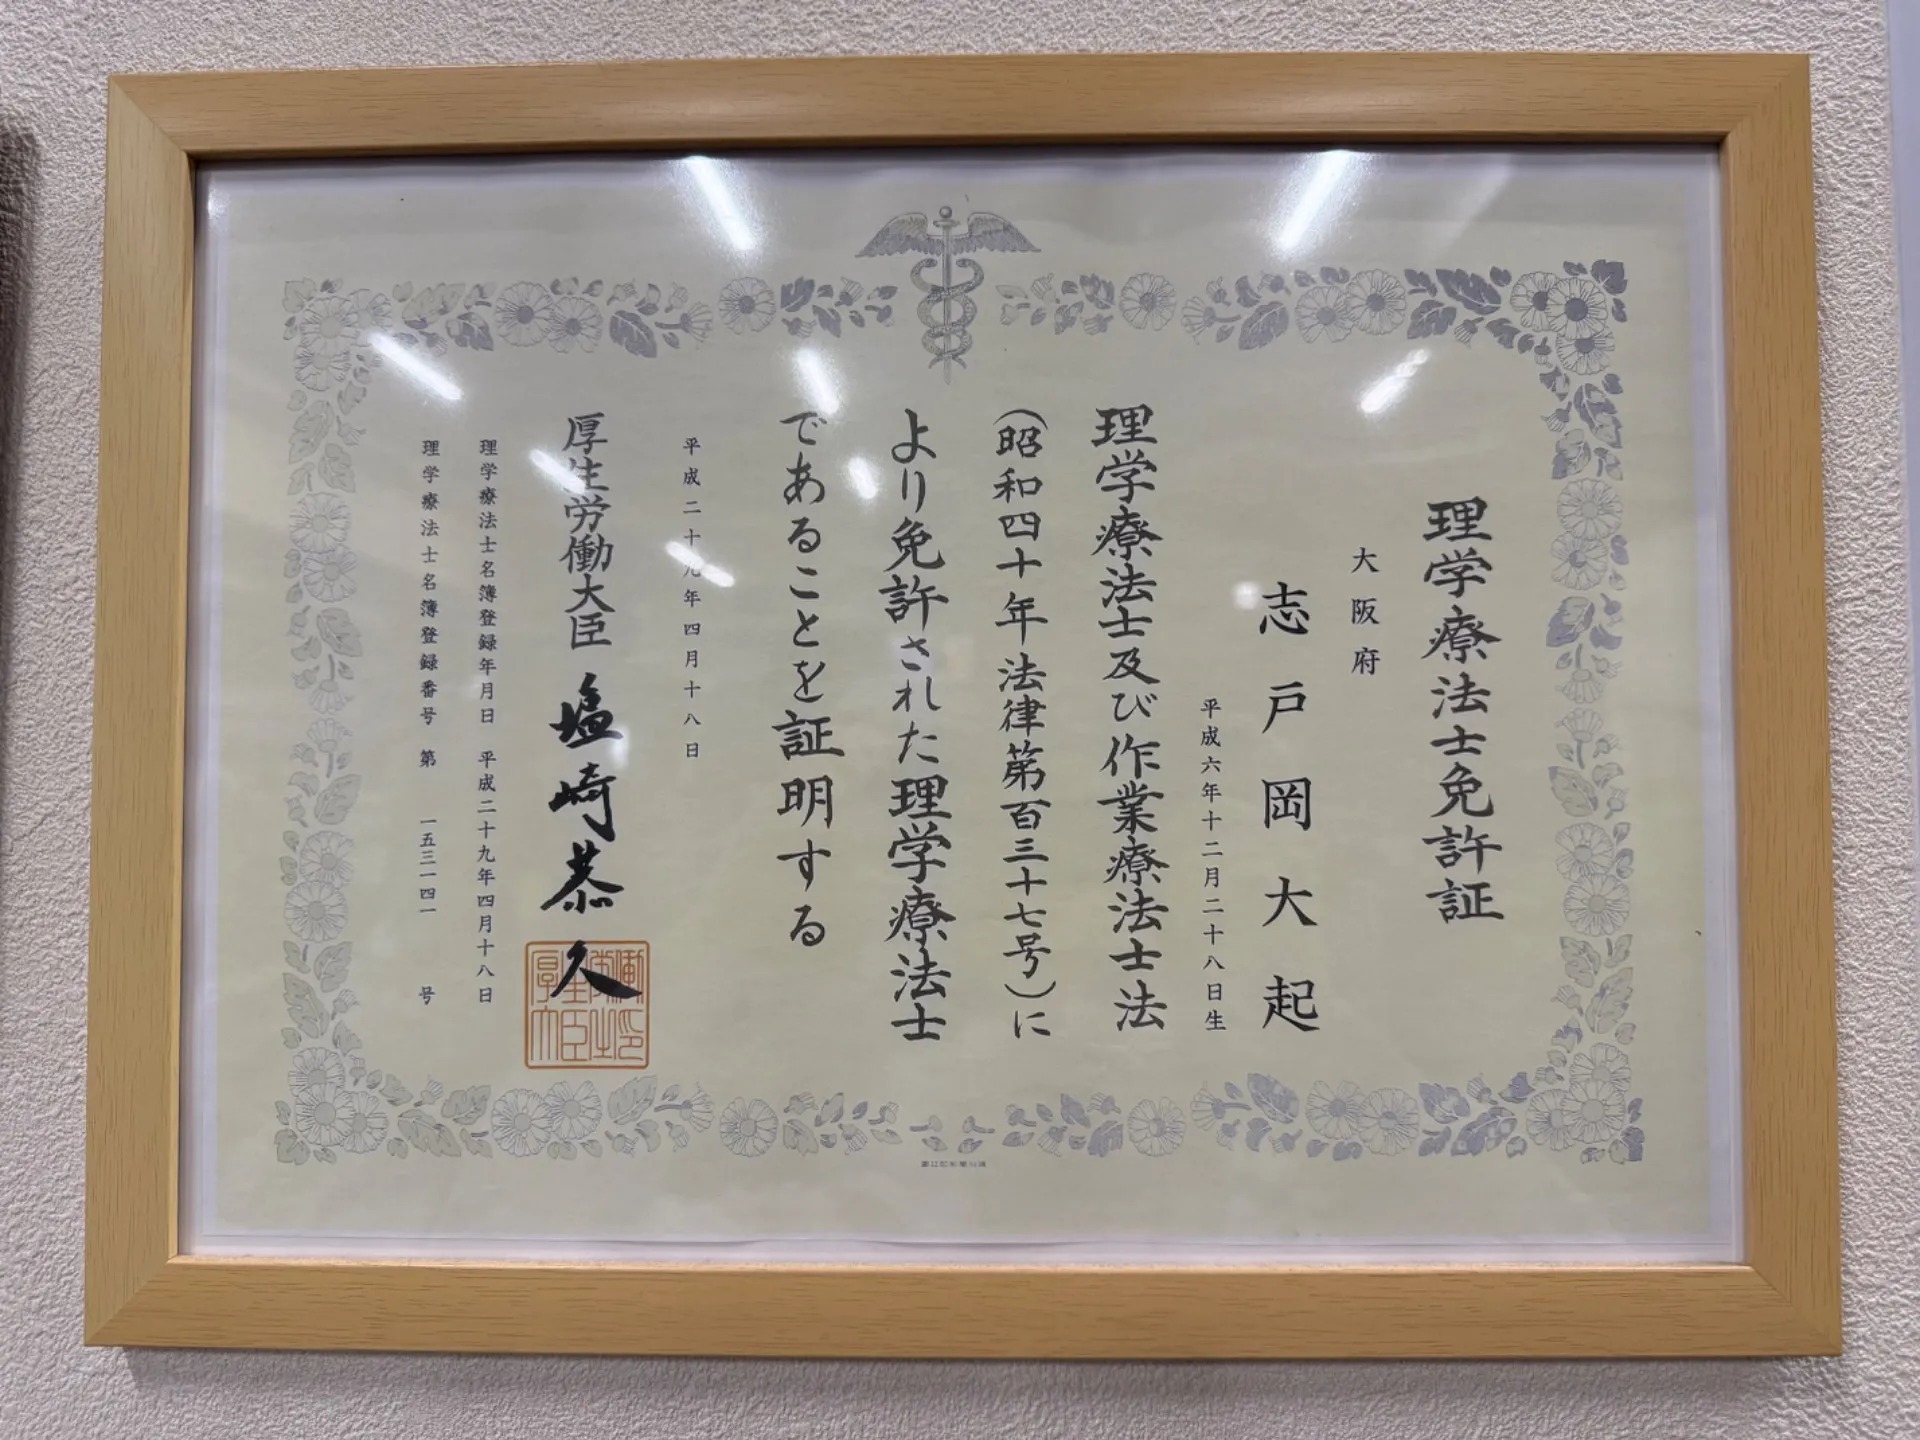 理学療法士免許証
大阪府
志戸岡大起
平成六年十二月二十八日生
理学療法士及び作業療法士法
(昭和四十年法律第百三十七号)に
より免許された理学療法士
であることを証明する
平成二十九年四月十八日
厚生労働大臣 塩崎恭久
理学療法士名簿登録年月日 平成二十九年四月十八日
理学療法士名簿登録番号 第 一五三一四一 号